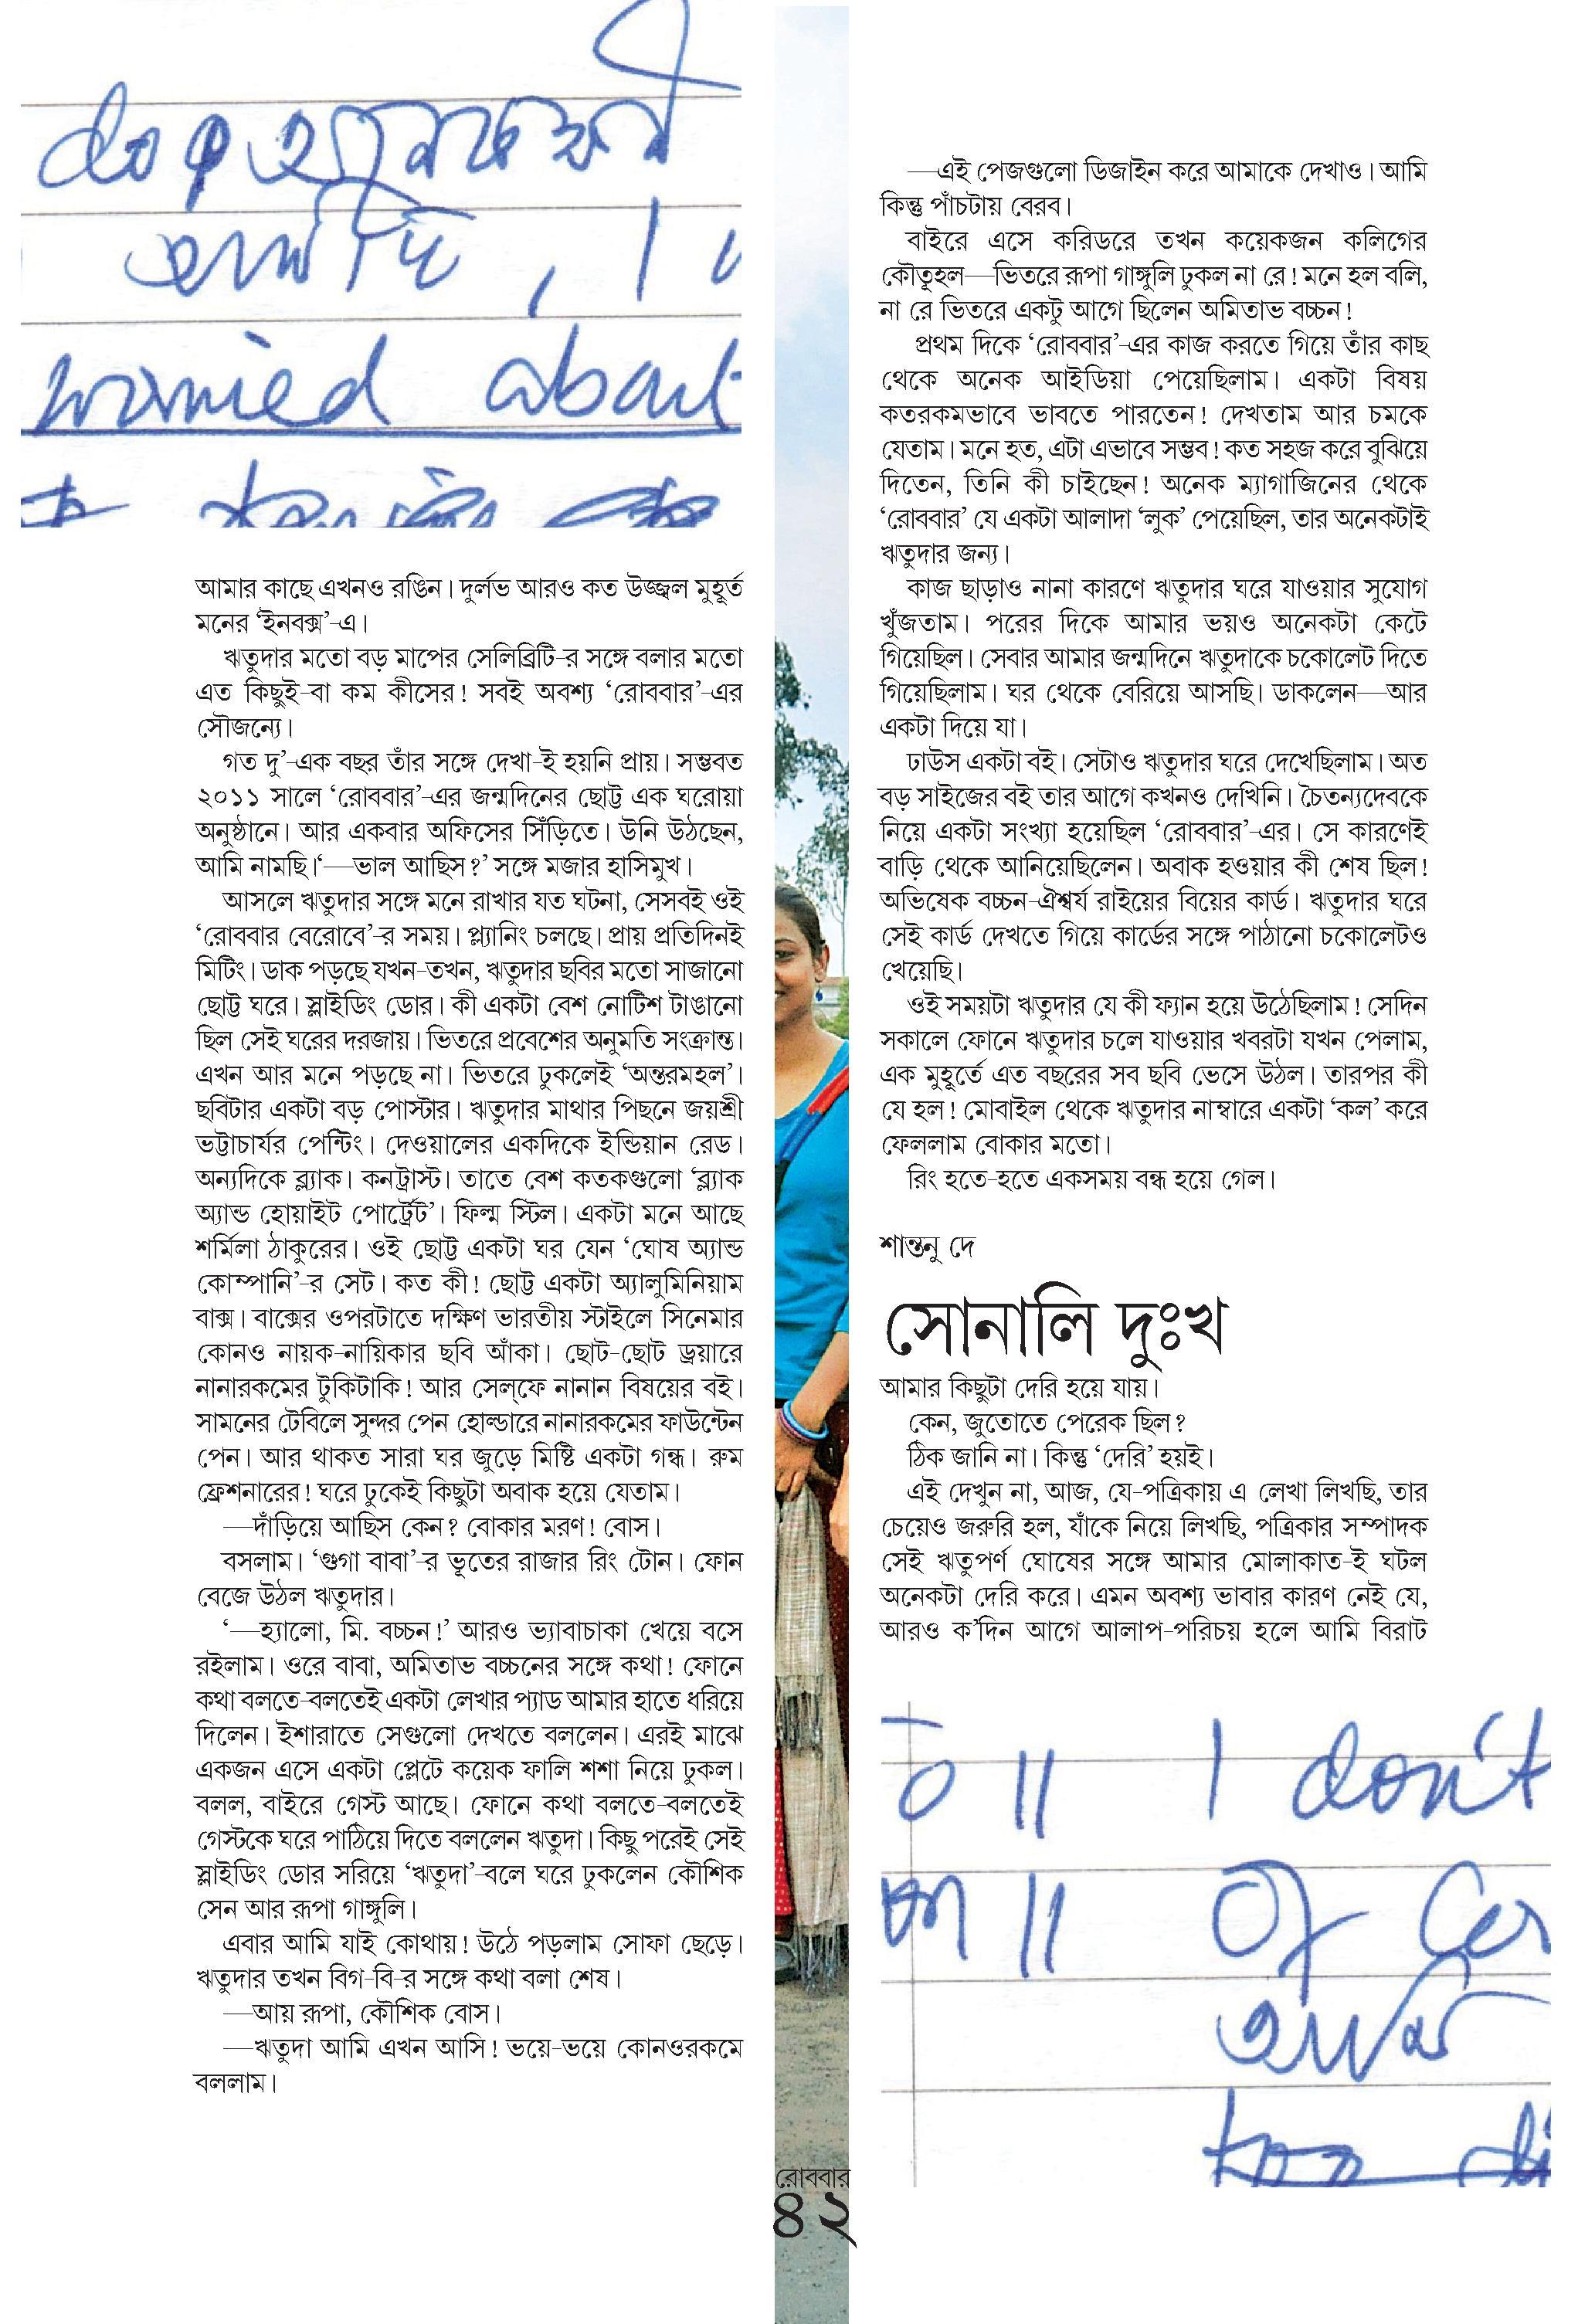 worried about
আমার কাছে এখনও রঙিন। দুর্লভ আরও কত উজ্জ্বল মুহূর্ত
মনের ‘ইনবক্স’-এ।
ঋতুদার মতো বড় মাপের সেলিব্রিটি-র সঙ্গে বলার মতো
এত কিছুই-বা কম কীসের! সবই অবশ্য ‘রোববার’-এর
সৌজন্যে।
গত দু’-এক বছর তাঁর সঙ্গে দেখা-ই হয়নি প্রায়। সম্ভবত
২০১১ সালে ‘রোববার’-এর জন্মদিনের ছোট্ট এক ঘরোয়া
অনুষ্ঠানে। আর একবার অফিসের সিঁড়িতে। উনি উঠছেন,
আমি নামছি।‘—ভাল আছিস?’ সঙ্গে মজার হাসিমুখ।
আসলে ঋতুদার সঙ্গে মনে রাখার যত ঘটনা, সেসবই ওই
‘রোববার বেরোবে’-র সময়। প্ল্যানিং চলছে। প্রায় প্রতিদিনই
মিটিং। ডাক পড়ছে যখন-তখন, ঋতুদার ছবির মতো সাজানো
ছোট্ট ঘরে। স্লাইডিং ডোর। কী একটা বেশ নোটিশ টাঙানো
ছিল সেই ঘরের দরজায়। ভিতরে প্রবেশের অনুমতি সংক্রান্ত।
এখন আর মনে পড়ছে না। ভিতরে ঢুকলেই ‘অন্তরমহল’।
ছবিটার একটা বড় পোস্টার। ঋতুদার মাথার পিছনে জয়শ্রী
ভট্টাচার্যর পেন্টিং। দেওয়ালের একদিকে ইন্ডিয়ান রেড।
অন্যদিকে ব্ল্যাক। কনট্রাস্ট। তাতে বেশ কতকগুলো ‘ব্ল্যাক
অ্যান্ড হোয়াইট পোর্ট্রেট’। ফিল্ম স্টিল। একটা মনে আছে
শর্মিলা ঠাকুরের। ওই ছোট্ট একটা ঘর যেন ‘ঘোষ অ্যান্ড
কোম্পানি’-র সেট। কত কী! ছোট্ট একটা অ্যালুমিনিয়াম
বাক্স। বাক্সের ওপরটাতে দক্ষিণ ভারতীয় স্টাইলে সিনেমার
কোনও নায়ক-নায়িকার ছবি আঁকা। ছোট-ছোট ড্রয়ারে
নানারকমের টুকিটাকি! আর সেল্‌ফে নানান বিষয়ের বই।
সামনের টেবিলে সুন্দর পেন হোল্ডারে নানারকমের ফাউন্টেন
পেন। আর থাকত সারা ঘর জুড়ে মিষ্টি একটা গন্ধ। রুম
ফ্রেশনারের! ঘরে ঢুকেই কিছুটা অবাক হয়ে যেতাম।
—দাঁড়িয়ে আছিস কেন? বোকার মরণ! বোস।
বসলাম। ‘গুগা বাবা’-র ভূতের রাজার রিং টোন। ফোন
বেজে উঠল ঋতুদার।
‘—হ্যালো, মি. বচ্চন!’ আরও ভ্যাবাচাকা খেয়ে বসে
রইলাম। ওরে বাবা, অমিতাভ বচ্চনের সঙ্গে কথা! ফোনে
কথা বলতে-বলতেই একটা লেখার প্যাড আমার হাতে ধরিয়ে
দিলেন। ইশারাতে সেগুলো দেখতে বললেন। এরই মাঝে
একজন এসে একটা প্লেটে কয়েক ফালি শশা নিয়ে ঢুকল।
বলল, বাইরে গেস্ট আছে। ফোনে কথা বলতে-বলতেই
গেস্টকে ঘরে পাঠিয়ে দিতে বললেন ঋতুদা। কিছু পরেই সেই
স্লাইডিং ডোর সরিয়ে ‘ঋতুদা’-বলে ঘরে ঢুকলেন কৌশিক
সেন আর রূপা গাঙ্গুলি।
এবার আমি যাই কোথায়! উঠে পড়লাম সোফা ছেড়ে।
ঋতুদার তখন বিগ-বি-র সঙ্গে কথা বলা শেষ।
—আয় রূপা, কৌশিক বোস।
—ঋতুদা আমি এখন আসি! ভয়ে-ভয়ে কোনওরকমে
বললাম।
—এই পেজগুলো ডিজাইন করে আমাকে দেখাও। আমি
কিন্তু পাঁচটায় বেরব।
বাইরে এসে করিডরে তখন কয়েকজন কলিগের
কৌতূহল—ভিতরে রূপা গাঙ্গুলি ঢুকল না রে! মনে হল বলি,
না রে ভিতরে একটু আগে ছিলেন অমিতাভ বচ্চন!
প্রথম দিকে ‘রোববার’-এর কাজ করতে গিয়ে তাঁর কাছ
থেকে অনেক আইডিয়া পেয়েছিলাম। একটা বিষয়
কতরকমভাবে ভাবতে পারতেন! দেখতাম আর চমকে
যেতাম। মনে হত, এটা এভাবে সম্ভব! কত সহজ করে বুঝিয়ে
দিতেন, তিনি কী চাইছেন! অনেক ম্যাগাজিনের থেকে
‘রোববার’ যে একটা আলাদা ‘লুক’ পেয়েছিল, তার অনেকটাই
ঋতুদার জন্য।
কাজ ছাড়াও নানা কারণে ঋতুদার ঘরে যাওয়ার সুযোগ
খুঁজতাম। পরের দিকে আমার ভয়ও অনেকটা কেটে
গিয়েছিল। সেবার আমার জন্মদিনে ঋতুদাকে চকোলেট দিতে
গিয়েছিলাম। ঘর থেকে বেরিয়ে আসছি। ডাকলেন—আর
একটা দিয়ে যা।
ঢাউস একটা বই। সেটাও ঋতুদার ঘরে দেখেছিলাম। অত
বড় সাইজের বই তার আগে কখনও দেখিনি। চৈতন্যদেবকে
নিয়ে একটা সংখ্যা হয়েছিল ‘রোববার’-এর। সে কারণেই
বাড়ি থেকে আনিয়েছিলেন। অবাক হওয়ার কী শেষ ছিল!
অভিষেক বচ্চন-ঐশ্বর্য রাইয়ের বিয়ের কার্ড। ঋতুদার ঘরে
সেই কার্ড দেখতে গিয়ে কার্ডের সঙ্গে পাঠানো চকোলেটও
খেয়েছি।
ওই সময়টা ঋতুদার যে কী ফ্যান হয়ে উঠেছিলাম! সেদিন
সকালে ফোনে ঋতুদার চলে যাওয়ার খবরটা যখন পেলাম,
এক মুহূর্তে এত বছরের সব ছবি ভেসে উঠল। তারপর কী
যে হল! মোবাইল থেকে ঋতুদার নাম্বারে একটা ‘কল’ করে
ফেললাম বোকার মতো।
রিং হতে-হতে একসময় বন্ধ হয়ে গেল।
শান্তনু দে
সোনালি দুঃখ
আমার কিছুটা দেরি হয়ে যায়।
কেন, জুতোতে পেরেক ছিল?
ঠিক জানি না। কিন্তু ‘দেরি’ হয়ই।
এই দেখুন না, আজ, যে-পত্রিকায় এ লেখা লিখছি, তার
চেয়েও জরুরি হল, যাঁকে নিয়ে লিখছি, পত্রিকার সম্পাদক
সেই ঋতুপর্ণ ঘোষের সঙ্গে আমার মোলাকাত-ই ঘটল
অনেকটা দেরি করে। এমন অবশ্য ভাবার কারণ নেই যে,
আরও ক’দিন আগে আলাপ-পরিচয় হলে আমি বিরাট
॥ I don't
॥ of
আমি
রোববার
৪২